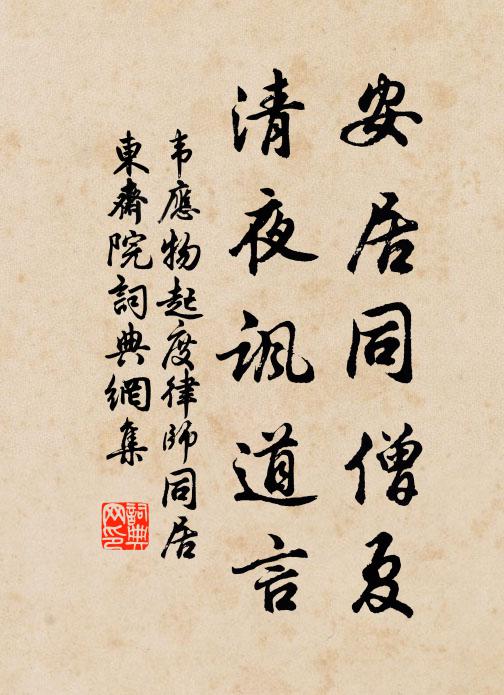 安居同僧夏
清夜諷道言
韦應物起度律師同居
東齋院詞典網集
詞典网印